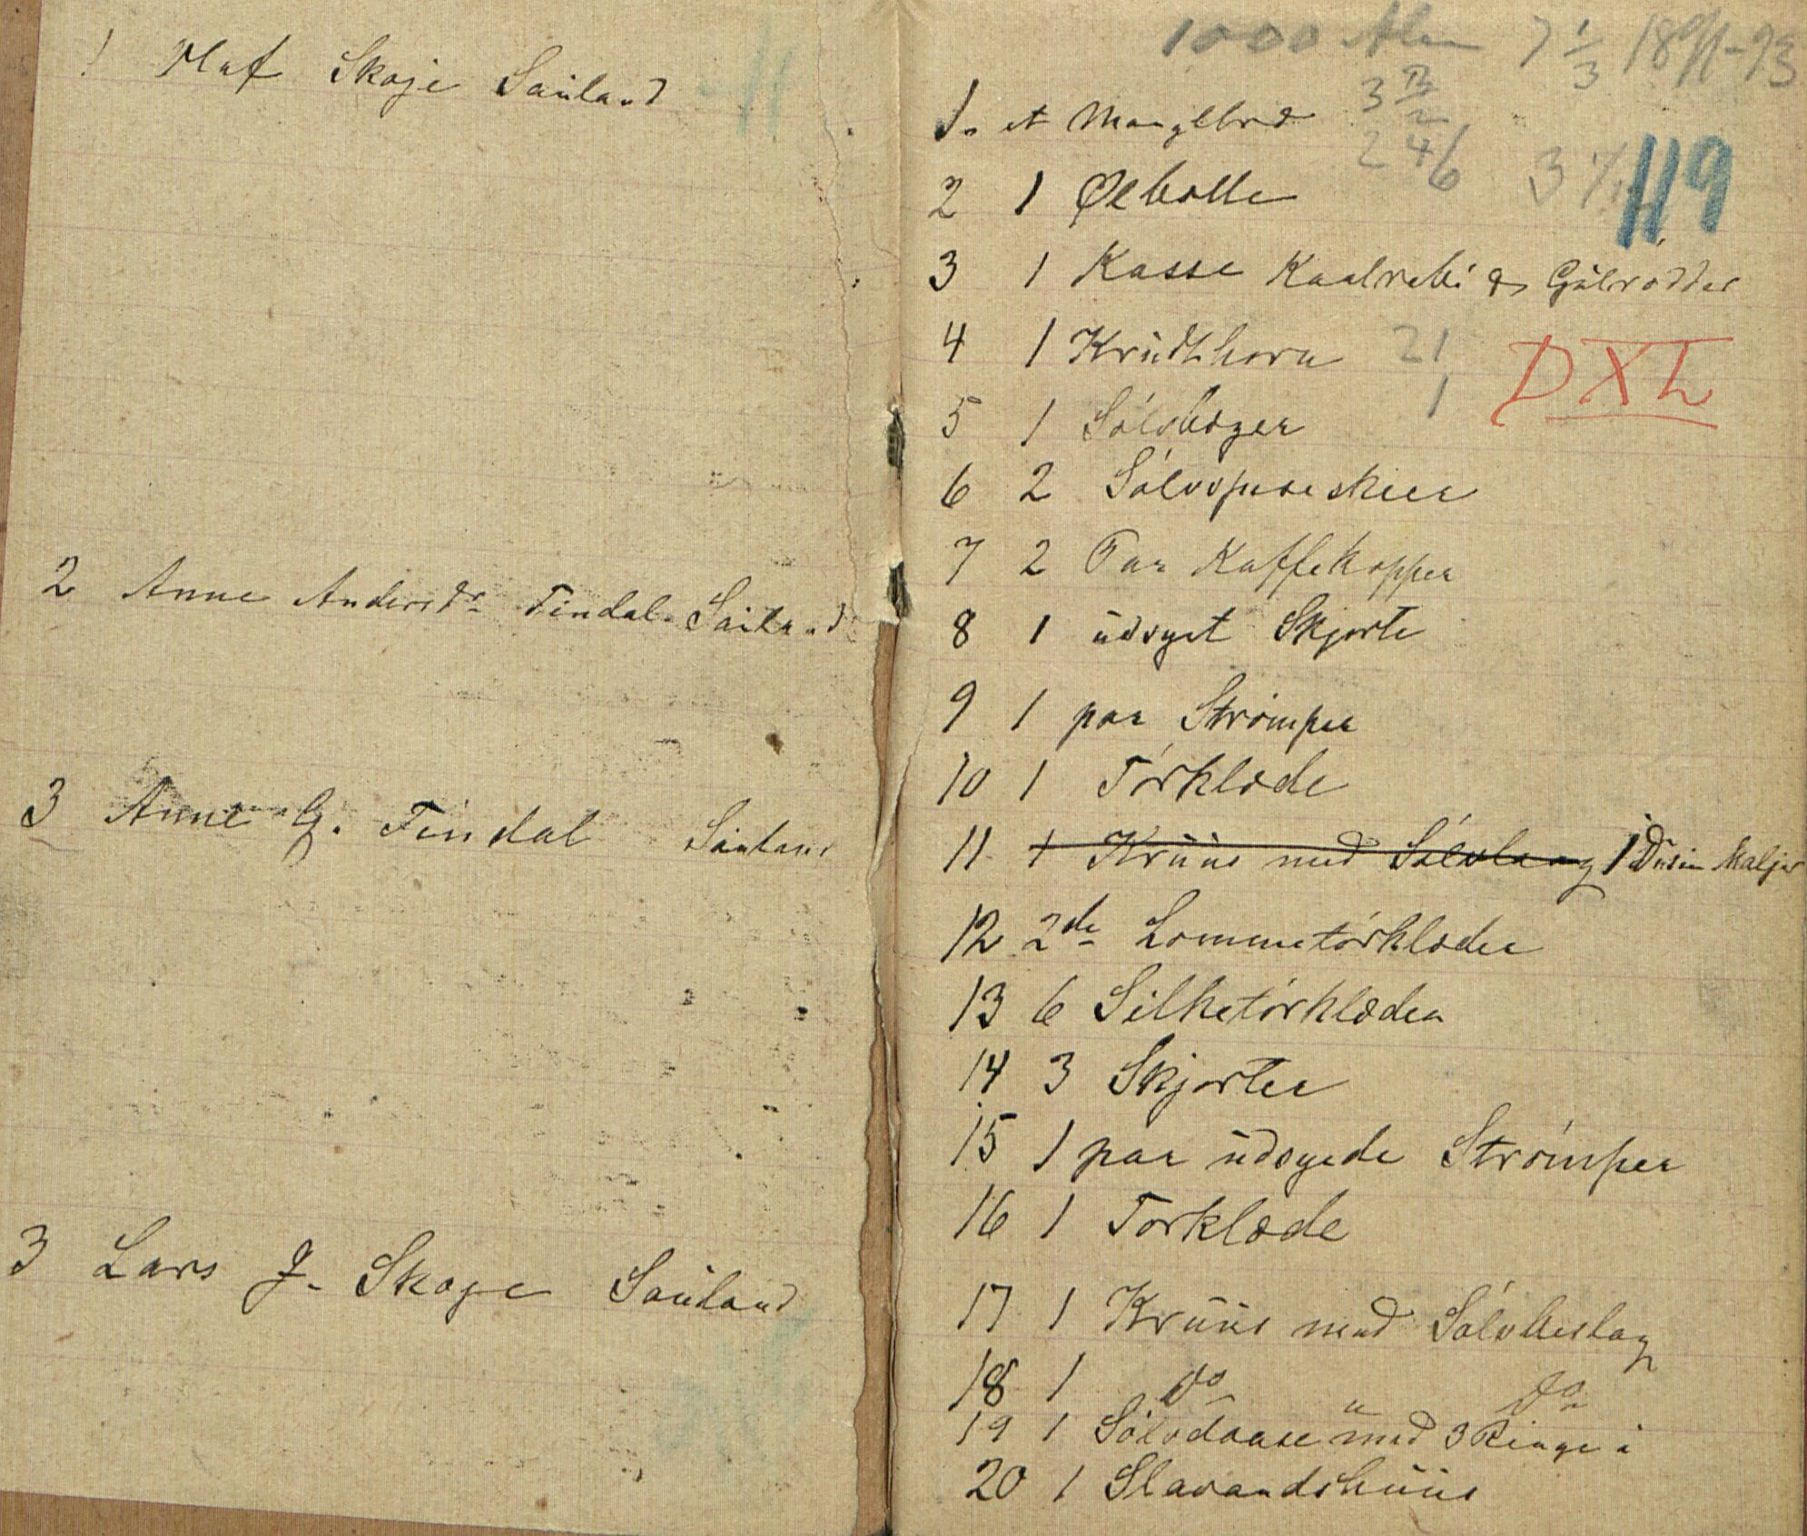 1 Olaf Skoje Sauland
2 Anne Andersdr Tindal. Sauland
3 Anne G. Tindal Sauland
3 Lars J. Skoje Sauland
1000 Alen 7 1/3 1891-93
3
2 46 3
119
1. et Manglbræd
2 1 Ølbolle
3 1 Kasse Kaalrabi og Gülrødder
4 1 Krüdthorn 21
DXL
5 1 Sölvbæger 1
6 2 Sölvspiseskeer
7 2 Par Kaffekopper
8 1 üdsyet Skjorte
9 1 par Strömper
10 1 Törklæde
11 1 Krüüs med Sölvlaag 1 Düsin Maljer
12 2de Lommetörklæder
13 6 Silketörklæder
14 3 Skjorter
15 1 par üdsyede Strömper
16 1 Torklæde
17 1 Krüüs med Sölvbeslag
18 1 do " do
19 1 Sölvdaase med 3 Ringe i
20 1 Slavandshüüs